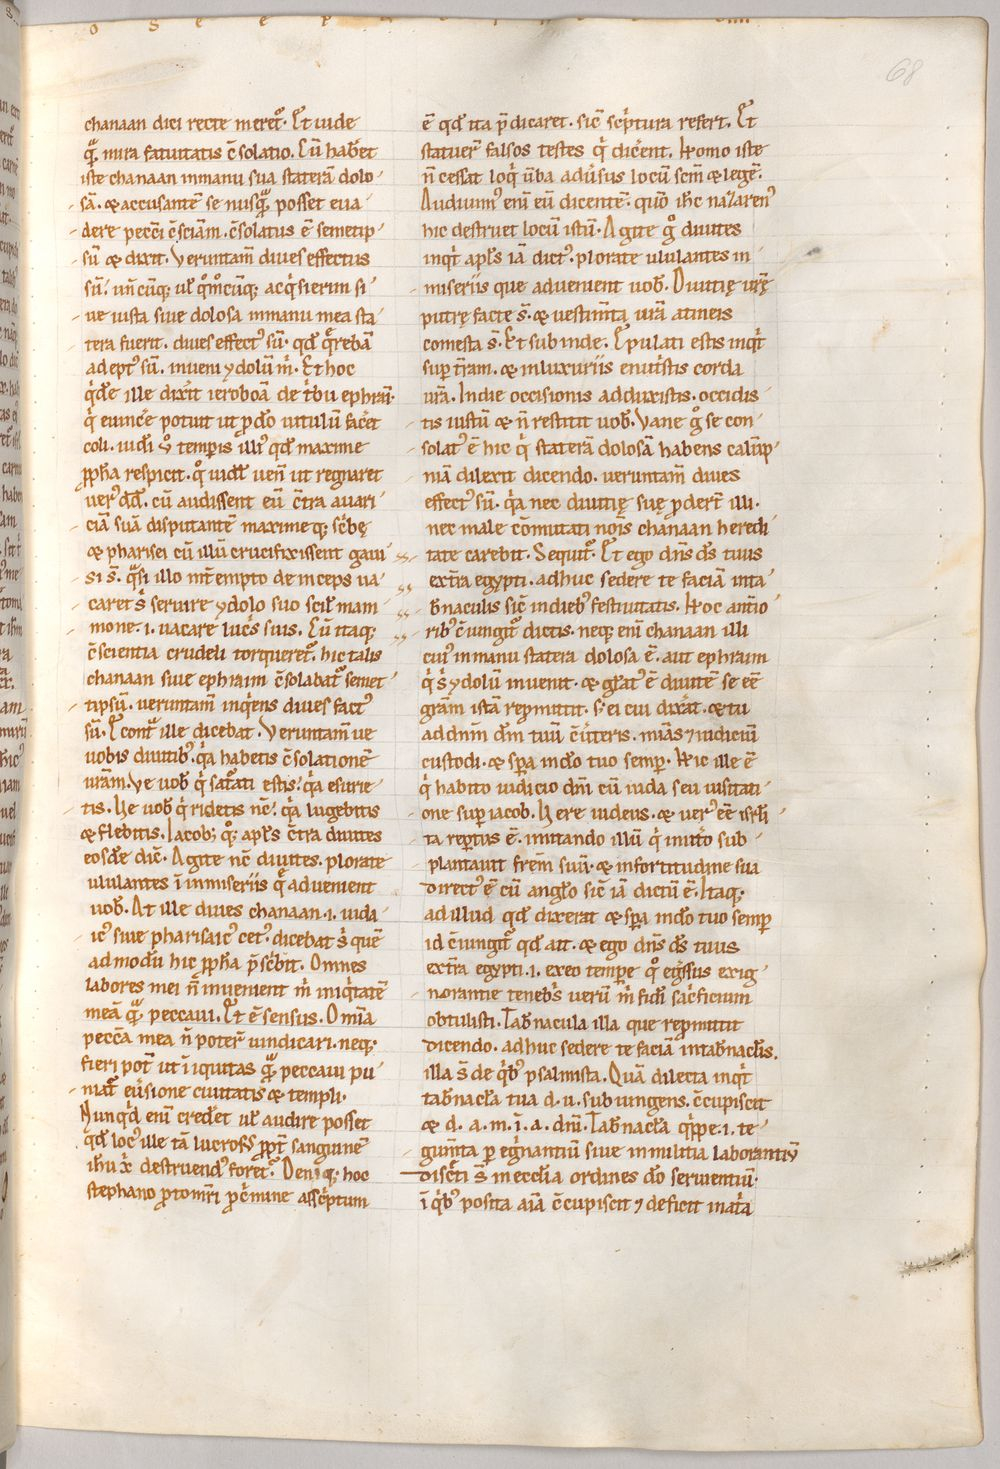 68
chanaan dici recte meret᷑. Et uide
qͣ̄ mira fatuitatis c̄solatio. Cū hab̄et
iste chanaan inmanu sua staterā dolo-
sā. & accusantē se nusqͣ̄ posset eua-
dere pecc̄i c̄sciam. c̄solatus ē semetip-
sū & dixit. Veruntam̄ diues effectus
sū. un̄cūq; ul̓ qͦmͦcūq; acqͥsierim si-
ue iusta siue dolosa inmanu mea sta-
tera fuerit. diues effectꝰ sū. qd̄ qͣ̄rebā
adeptꝰ sū. inueni ydolū m̄. Et hoc
qͥdē ille dixit ieroboā de tͥbu ephraī.
qͥ euinc̄e potuit ut ꝓ dō uitulū fac̄et
coli. iud̄i u̾ temp̄is illiꝰ qd̄ maxime
ꝓph̄a respicit. qͦ uid̄l uen̄ ut regnaret
uerꝰ dd̄. cū audissent eū c̄tra auari-
ciā suā disputantē maximeq; sc̄bę
& pharisei cū illū crucifixissent gaui-
si s̄. qͣsi illo int̄empto deinceps ua-
caret s̄ seruire ydolo suo scil̓ mam-
mone. i. uacare luc̄s suis. Cū itaq;
c̄scientia crudeli torqueret᷑. hic talis
chanaan siue ephraim c̄solabat᷑ semet-
ipsū. ueruntam̄ inqͥens diues factꝰ
sū. E contͣ ille dicebat. Veruntam̄ ue
uobis diuitibꝰ. qͣ habetis c̄solationē
ur̄am. Ve uob̄ qͥ satͣati estis. qͣ esurie-
tis. Ve uob̄ qͥ ridetis nc̄. qͣ lugebitis
& flebitis. Iacobꝰ qͦq; apl̄s c̄tra diuites
eosdē dic̄. Agite nc̄ diuites. plorate
ululantes ī inmiseriis qͣ̄ aduenient
uob̄. At ille diues chanaan .i. iuda-
icꝰ siue pharisaicꝰ cetꝰ. dicebat s̄ quē
admodū hic ꝓph̄a p̄sc̄bit. Omnes
labores mei n̄ inuenient m̄ iniqͥtatē
meā qͣ̄ peccaui. Et ē sensus. Om̄ia
pecc̄a mea n̄ poter̄ uindicari. neq;
fieri pot̄ ut īiquitas qͣ̄ peccaui pu-
niat᷑ eūsione ciuitatis & templi.
Nunqͥd eni̅ cred̄et ul̓ audire posset
qd̄ locꝰ ille tā lucrosꝰ ꝓpt̄ sanguinē
ih̄u x̄ destruendꝰ foret. Deniq; hoc
stephano ꝓtomr̄i ꝓ c̄mine asc̄ptum
ē qd̄ ita p̄dicaret. sic̄ sc̄ptura refert. Et
statuer̄ falsos testes qͥ dic̄ent. Homo iste
n̄ cessat loqͥ ūba adūsus locū sc̄m & legē.
Audiuimꝰ eni̅ eū dicentē. qm̄ ih̄c nazarenꝰ
hic destruet locū istū. Agite gͦ diuites
inqͥt apl̄s iā dictꝰ. plorate ululantes in
miseriis que aduenient uob̄. Diuitię ur̄ę
putrę facte s̄. & uestim̄ta ur̄a atineis
comesta s̄. Et subinde. Epulati estis inqͥt
suꝑ t̄ram. & inluxuriis enut̄stis corda
ur̄a. Indie occisionis adduxistis. occidis-
tis iustū & n̄ restitit uob̄. Vane gͦ se con-
solatꝰ ē hic qͥ staterā dolosā habens calūp-
niā dilexit dicendo. ueruntam̄ diues
effectꝰ sū. qͣ nec diuitię suę ꝓder̄t illi.
nec male c̄mutati nōis chanaan heredi-
tate carebit. Sequit᷑. Et ego dn̄s ds̄ tuus
ext̄ra egypti. adhuc sedere te faciā inta-
b̄naculis sic̄ indiebꝰ festiuitatis. Hoc ant̄io-
ribꝰ c̄iungit᷑ dictis. neq; eni̅ chanaan illi
cuiꝰ inmanu statera dolosa ē. aut ephraim
qͥ s̄ ydolū inuenit. & gl̄atꝰ ē diuitē se eē
gram̄ istā repmittit. s; ei cui dixāt. & tu
addnm̄ dm̄ tuū c̄ūteris. mi̅as ⁊ iudiciū
custodi. & sꝑa indō tuo semꝑ. Hic ille ē
qͥ habito iudicio dn̄i cū iuda seu uisitati-
one suꝑ iacob. Vere iudeus. & uerꝰ eē isrl̄i-
ta reꝑtus ē. imitando illū qͥ inut̄o sub-
plantauit frem̄ suū. & infortitudine sua
directꝰ ē cū anglo sic̄ iā dictū ē. Itaq;
ad illud qd̄ dixerat & sꝑa indō tuo semꝑ
id c̄iungit᷑ qd̄ ait. & ego dn̄s ds̄ tuus
ext̄ra egypti .i. exeo temꝑe qͦ eg̅ssus exig-
norantie teneb̄s uerū m̄ fid̄i sac̄ficium
obtulisti. Tab̄nacula illa que repmittit
dicendo. adhuc sedere te faciā intab̄nacl̄is.
illa s̄ de qͥbꝰ psalmista. Quā dilecta inqͥt
tab̄nacl̄a tua d. u. subiungens. c̄cupiscit
& d. a. m. ī. a. dn̄i. Tab̄nacl̄a qͥppe .i. te-
guriıta peg̅nantiū siue inmilitia laborantiū
disc̄ti s̄ in eccl̄ia ordines dō seruientiū.
ī qͥbꝰ posita aīa c̄cupiscit ⁊ deficit inat̄a